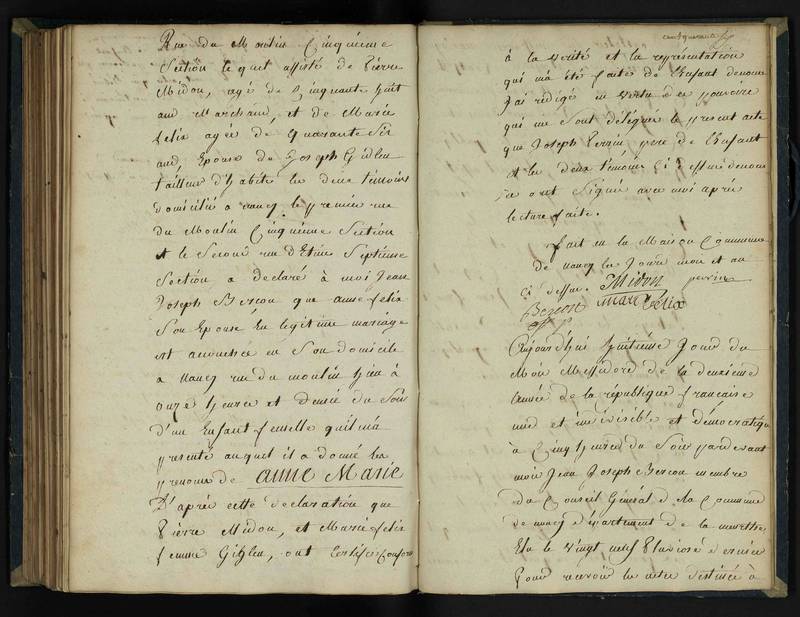 Rue du Moulin Cinquieme
Section lequel assisté de Pierre
Midon, agé de Cinquante huit
ans Marchand, et de Marie
felix agée de Quarante Six
ans, Epouse de Joseph
tailleur d'habits les deux témoins
domiciliés a nancy le premier rue
du Moulin Cinquieme Section
et le Second rue Septieme
Section a declaré à moi Jean
Joseph que anne felix
Son Epouse En légitime mariage
est accouchée en Son domicile
a nancy rue du moulin hier à
onze heures et demie du Soir
d'un Enfant femelle quil m'a
presenté auquel il a donné les
prenoms de anne Marie
D'après cette declaration que
Pierre Midon, et Marie felix
femme ont Certifié conforme
à la verité et la représentation
qui m'a été faite de l'Enfant denommé
J'ai rédigé en vertu des pouvoirs
qui me Sont délégués le present acte
que Joseph Perrin pere de l'Enfant
et les deux témoins Ci dessus denommés
ont Signé avec moi après
lecture faite.
fait en la Maison Commune
de nancy les Jours mois et an
Ci dessus. Midon perrin
Marie felix
Aujourd'hui huitieme Jour du
Mois Messidor de la deuxieme
année de la république francaise
une et indivisible et démocratique
à Cinq heures du Soir pardevant
moi Jean Joseph membre
du Conseil Général de la Commune
de nancy département de la meurthe
Elu le vingt neuf Pluviose dernier
pour recevoir les actes destinés à